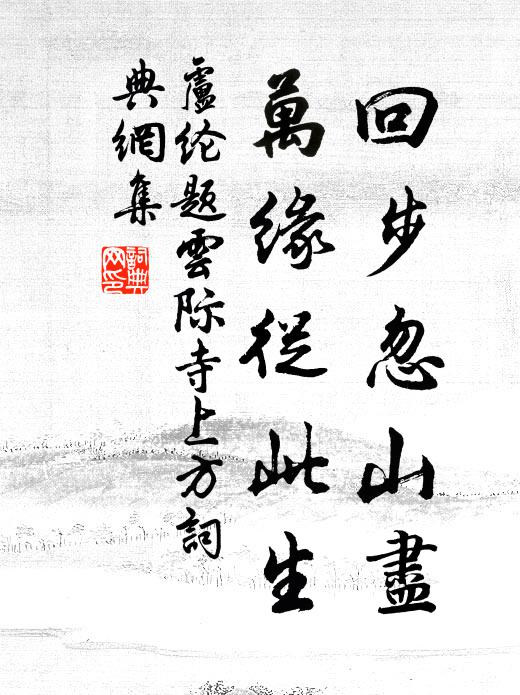 回步忽山盡
萬緣從此生
盧纶题雲际寺上方詞
典網集
詞典
网印